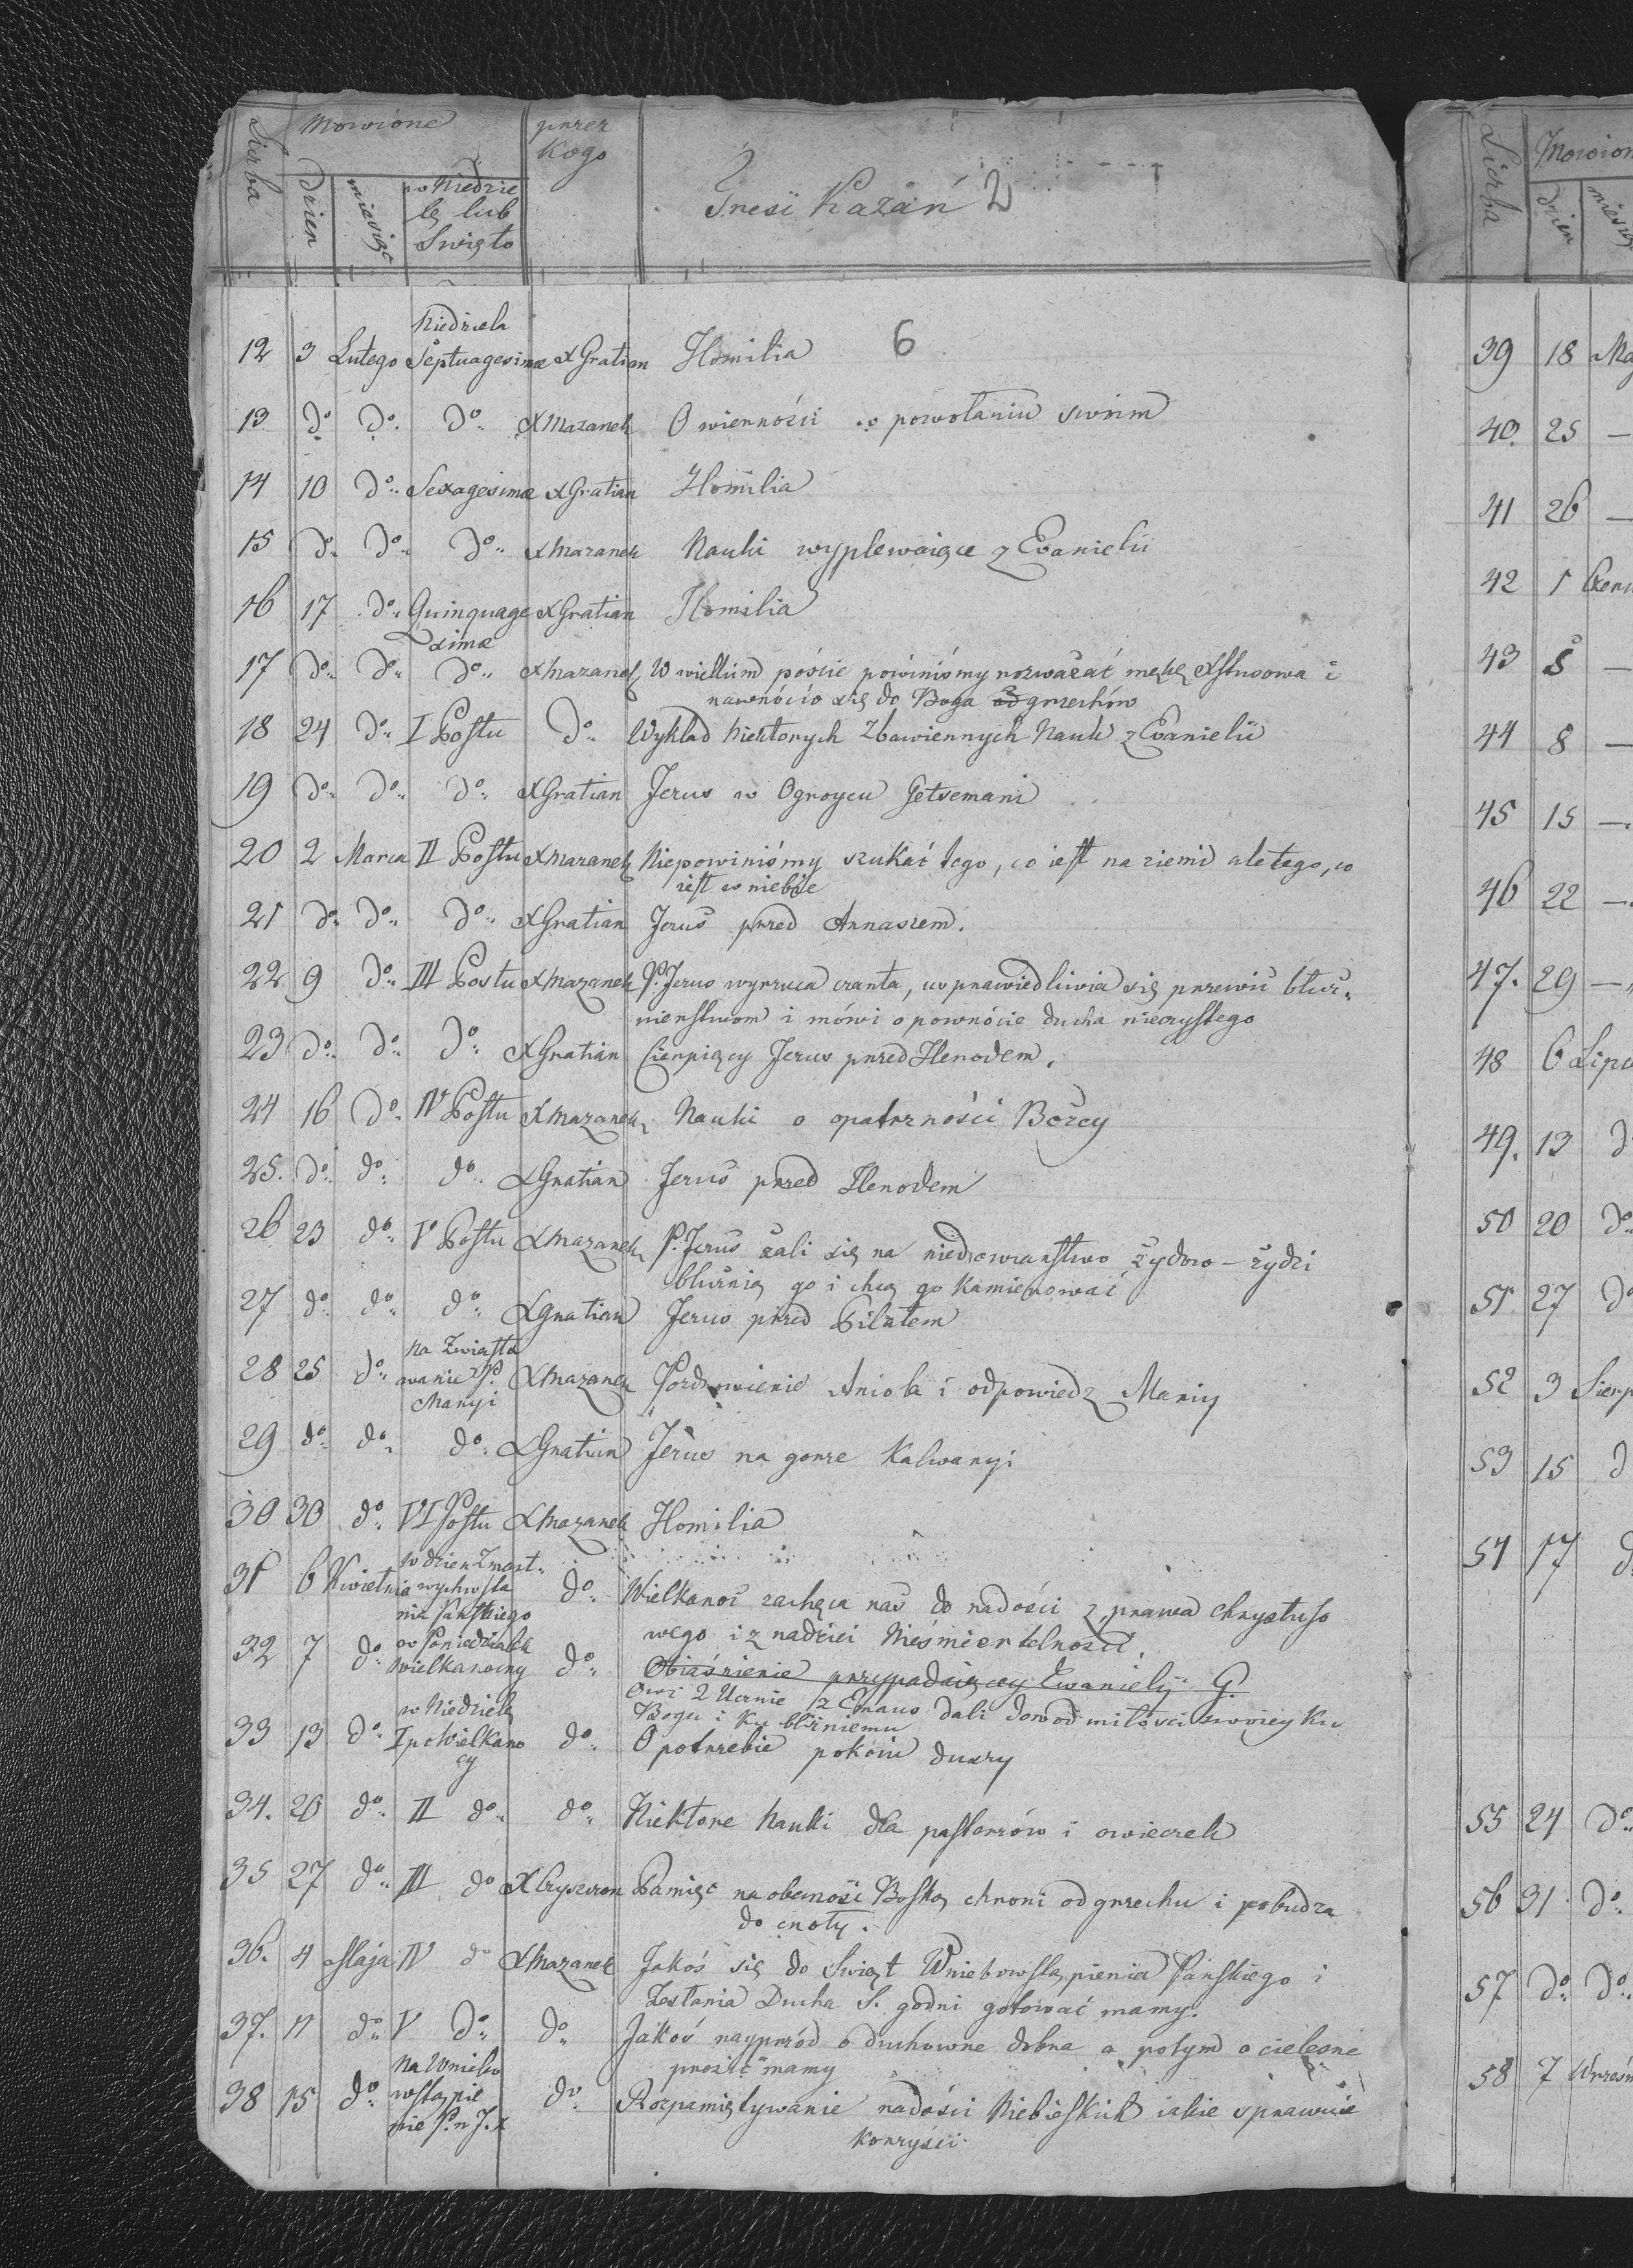 Liczba Mowione przez Kogo Treść Kazań 2
Dzien miesiąc w Niedzielę lub Swięto
6
Niedziela
12 3 Lutego Septuagesimæ X Gratian Homilia
13 do do do X Mazanek O wierności w powołaniu swoim
14 10 do Sexagesimæ X Gratian Homilia
15 do do do X Mazanek Nauki wyplewaiące z Ewanielii
16 17 do Quinquage X Gratian Homilia
simæ
17 do do do X Mazanek W wielkim poście powiniśmy rozważać mękę Xstusowa i
nawrócić się do Boga od grzechów
18 24 do I Postu do Wykład niektorych Zbawiennych Nauk z Ewanielii
19 do do do X Gratian Jezus w Ogroycu Getsemani
20 2 Marca II Postu X Mazanek Niepowiniśmy szukać tego, co iest na ziemi ale tego, co
iest w niebie
21 do do do X Gratian Jezus przed Annaszem.
22 9 do III Postu X Mazanek P. Jezus wyrzuca czarta, usprawiedliwia się przeciw bluź-
nierstwom i mówi o powrócie ducha nieczystego
23 do do do X Gratian Cierpiący Jezus przed Herodem.
24 16 do IV Postu X Mazanek Nauki o opatrzności Bożey
25. do do do X Gratian Jezus przed Herodem
26 23 do V Postu X Mazanek P. Jezus żali się na niedowiarstwo żydow - żydzi
bluźnią go i chcą go kamienować
27 do do do X Gratian Jezus przed Piłatem
na Zwiasto
28 25 do wanie P. X Mazanek Pozdrowienie Anioła i odpowiedz Mariy
Maryi
29 do do do X Gratian Jezus na gorze Kalwaryi
30 30 do VI Postu X Mazanek Homilia
w dzien Zmart-
31 6 Kwietnia wychwsta do Wielkanoc zachęca nas do radości z prawa Chrystuso
nia Pańskiego
wego i z nadziei Nieśmiertelności.
w Poniedziałek
32 7 do wielkanocny do Obiaśnienie przypadaiącey Ewaniely G.
Owi 2 Ucznie z Emaus dali dowod miłosci swoiey ku
Bogu i Ku bliźniemu
w Niedziele
33 13 do I po Wielkano do O potrzebie pokoiu duszy
cy
34. 20 do II do do Niektore Nauki dla pasterzów i owieczek
35 27 do III do X Cryszczon Pamięc na obecność Boską chroni od grzechu i pobudza
do cnoty.
36. 4 Maja IV do X Mazanek Jakoś się do Swięt Wniebowstąpienia Pańskiego i
Zesłania Ducha S. godni gotować mamy.
37. 11 do V do do Jakoś nayprzód o duchowne dobra a potym o cielesne
prosić mamy
Na Wniebo
38 15 do wstąpie do Rozpamiętywanie radości Niebieskich iakie sprawuie
nie P. n J. X
korzyści
Liczba Mowion
dzien miesią
39 18 Ma
40. 25 —
41 26 —
42 1 Czerw
43 5 —
44 8 —
45 15 —
46 22 —
47. 29 —
48 6 Lipc
49. 13 d
50 20 do
51 27 do
52 3 Sierp
53 15 d
54 17 d
55 24 do
56 31 do
57 do do
58 7 Wrześn